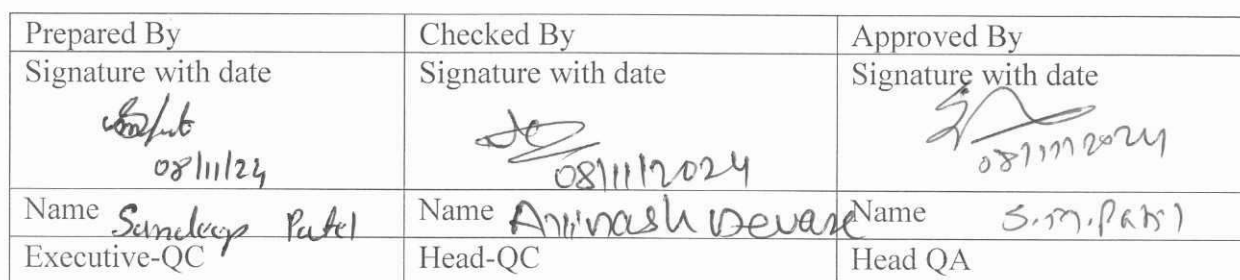 Prepared By Checked By Approved By
Signature with date Signature with date Signature with date
08/11/24 08/11/2024 08/11/2024
Name Sandeep Patel Name Avinash Devare Name S.M. Patil
Executive-QC Head-QC Head QA